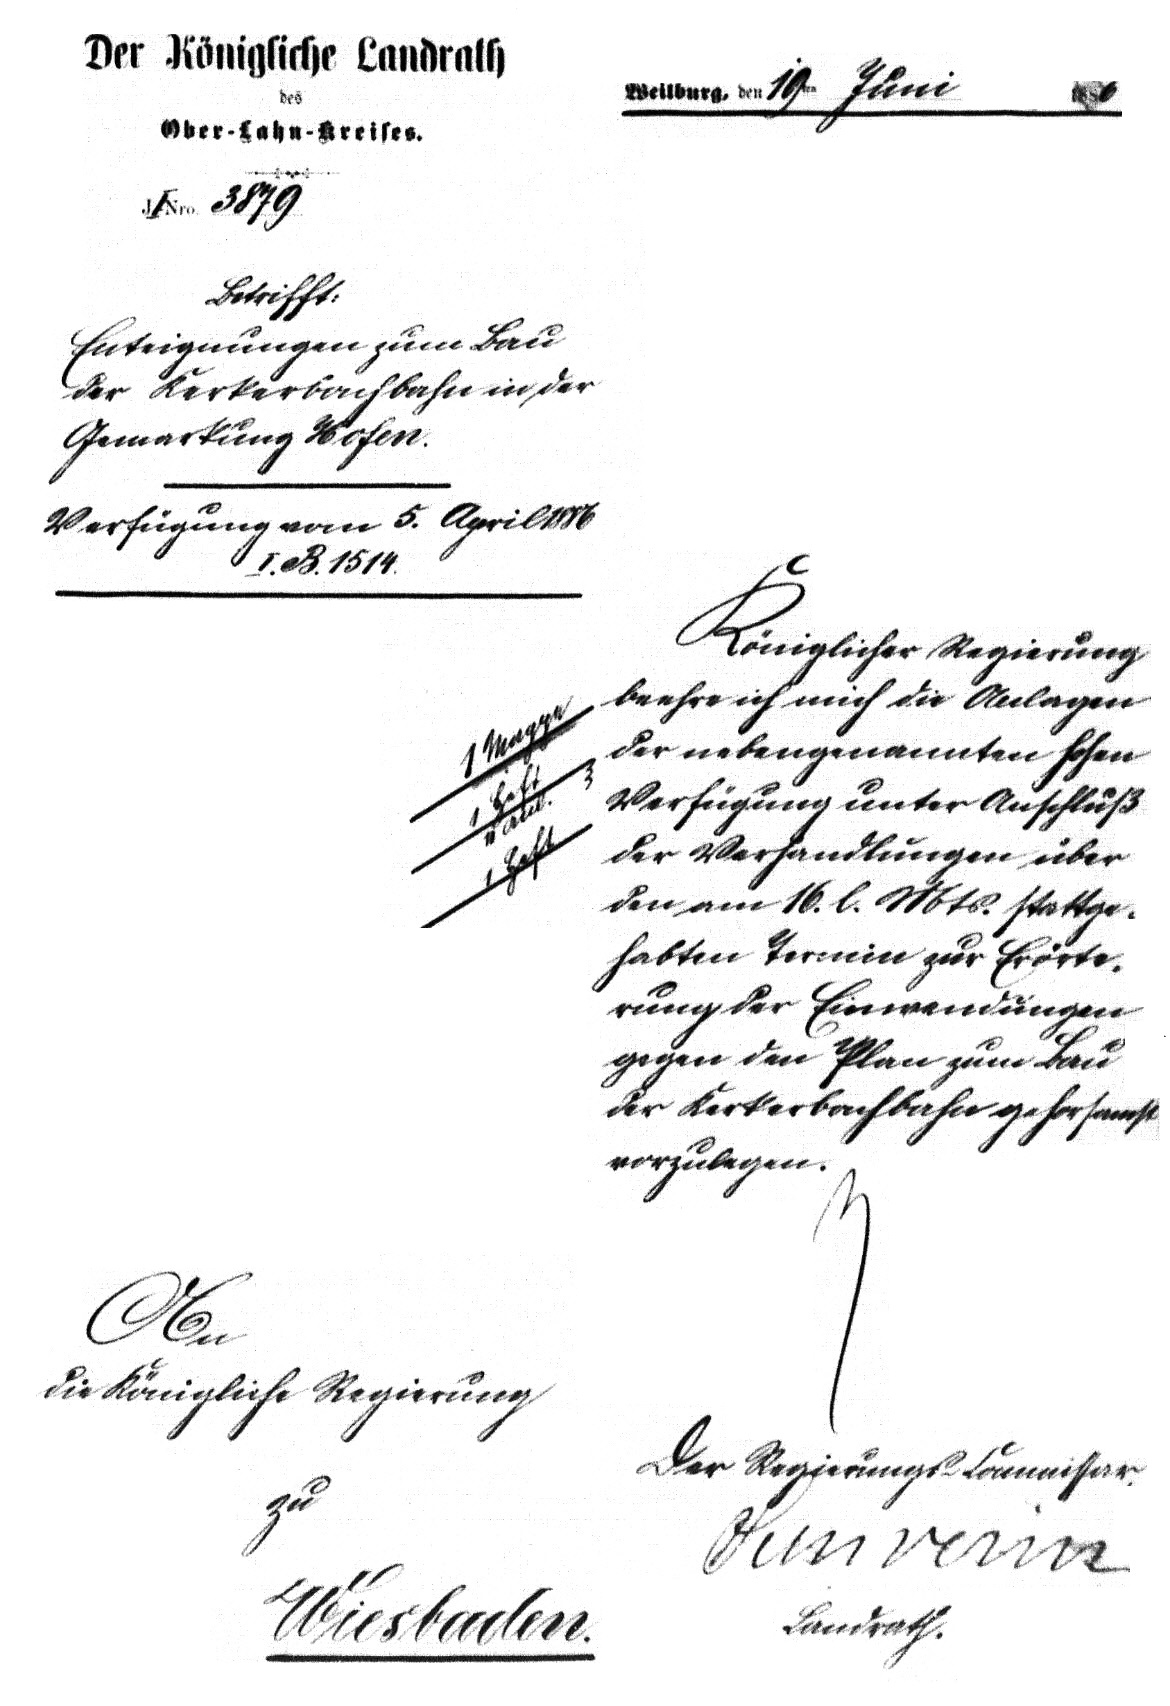 Der Königliche Landrath
des
Ober-Lahn-Kreises.
Weilburg, den 19ten Juni
J. I Nro. 3879
Betrifft:
Enteignungen zum Bau
der Kerkerbachbahn in der
Gemarkung Hofen.
Verfügung vom 5. April 1886
I. B. 1514.
1 Mappe
1 Heft
1 Heft
3
Königlicher Regierung
beehre ich mich die Anlagen
der nebengenannten hohen
Verfügung unter Anschluß
der Verhandlungen über
den am 16. l. Mts. stattge-
habten Termin zur Erörte-
rung der Einwendungen
gegen den Plan zum Bau
der Kerkerbachbahn gehorsamst
vorzulegen.
An
die Königliche Regierung
zu
Wiesbaden.
Der Regierungs-Commissar.
Landrath.